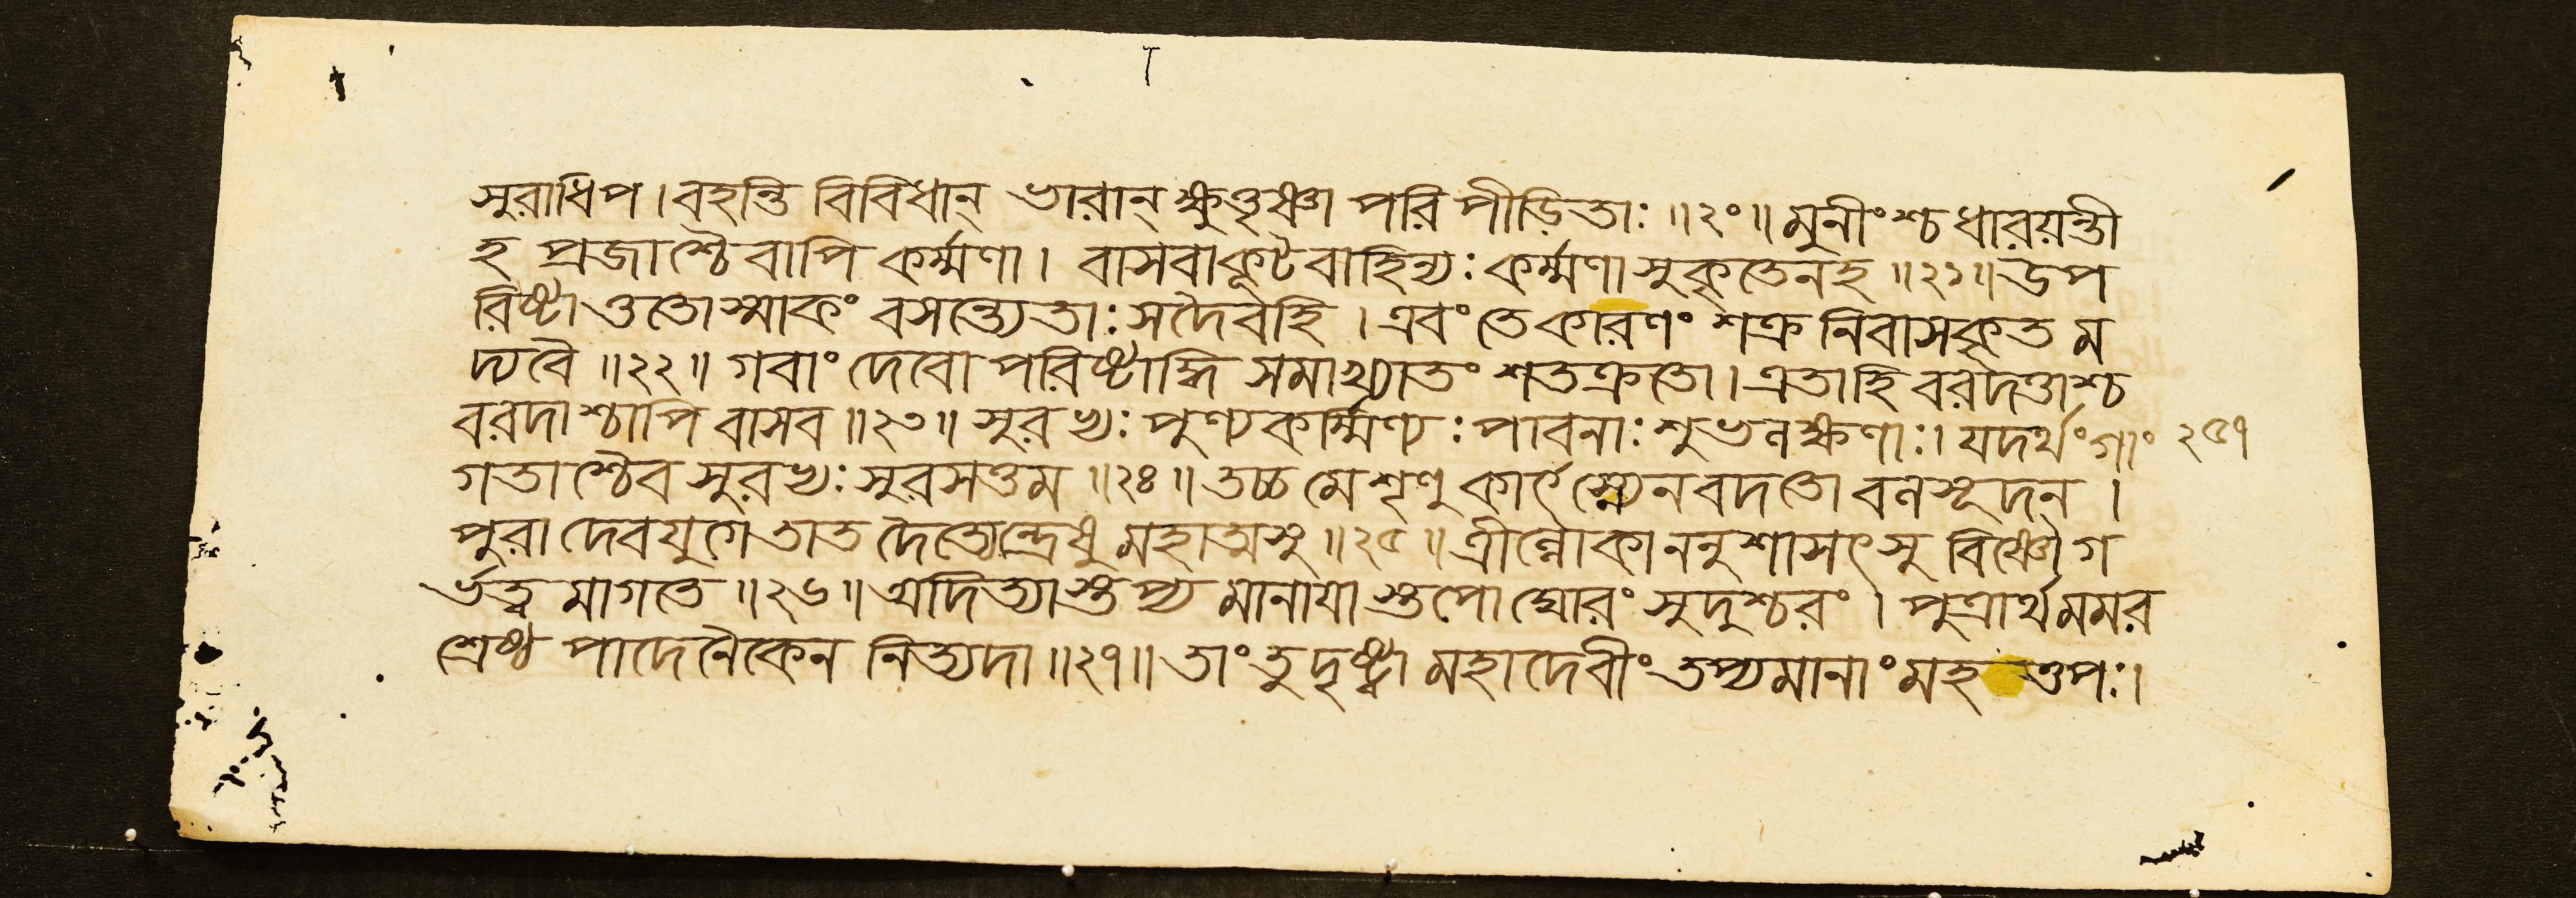 সুরাধিপ। বহন্তি বিবিধান্ ভারান্ ক্ষুত্তৃষ্ণা পরিপীড়িতাঃ॥২০॥ মুনীংশ্চ ধারয়ন্তী
হ প্রজাশ্চৈবাপি কর্ম্মণা। বাসবাকূটবাহিন্যঃ কর্ম্মণা সুকৃতেনহ॥২১॥ উপ
রিষ্টাত্ততোস্মাকং বসন্ত্যেতাঃ সদৈবহি। এবং তে কারণং শক্র নিবাসকৃত ম
দ্যবৈ॥২২॥ গবাং দেবোপরিষ্টাদ্ধি সমাখ্যাতং শতক্রতো। এতাহি বরদত্তাশ্চ
বরদাশ্চাপি বাসব॥২৩॥ সুরভ্যঃ পুণ্যকর্ম্মিণ্যঃ পাবনাঃ শুভলক্ষণাঃ। যদর্থং গাং ২৫৭
গতাশ্চৈব সুরভ্যঃ সুরসত্তম॥২৪॥ তচ্চ মে শৃণু কার্ৎস্ন্যেন বদতো বলসূদন।
পুরা দেবযুগে তাত দৈত্যেন্দ্রেষু মহাত্মসু॥২৫॥ ত্রীল্লোকাননুশাসৎসু বিষ্ণৌ গ
র্ভত্ব মাগতে॥২৬॥ অদিত্যাস্তপ্য মানায়াস্তপোঘোরং সুদুশ্চরং। পুত্রার্থমমর
শ্রেষ্ঠ পাদেনৈকেন নিত্যদা॥২৭॥ তাং তু দৃষ্ট্বা মহাদেবীং তপ্যমানাং মহ ত্তপঃ।